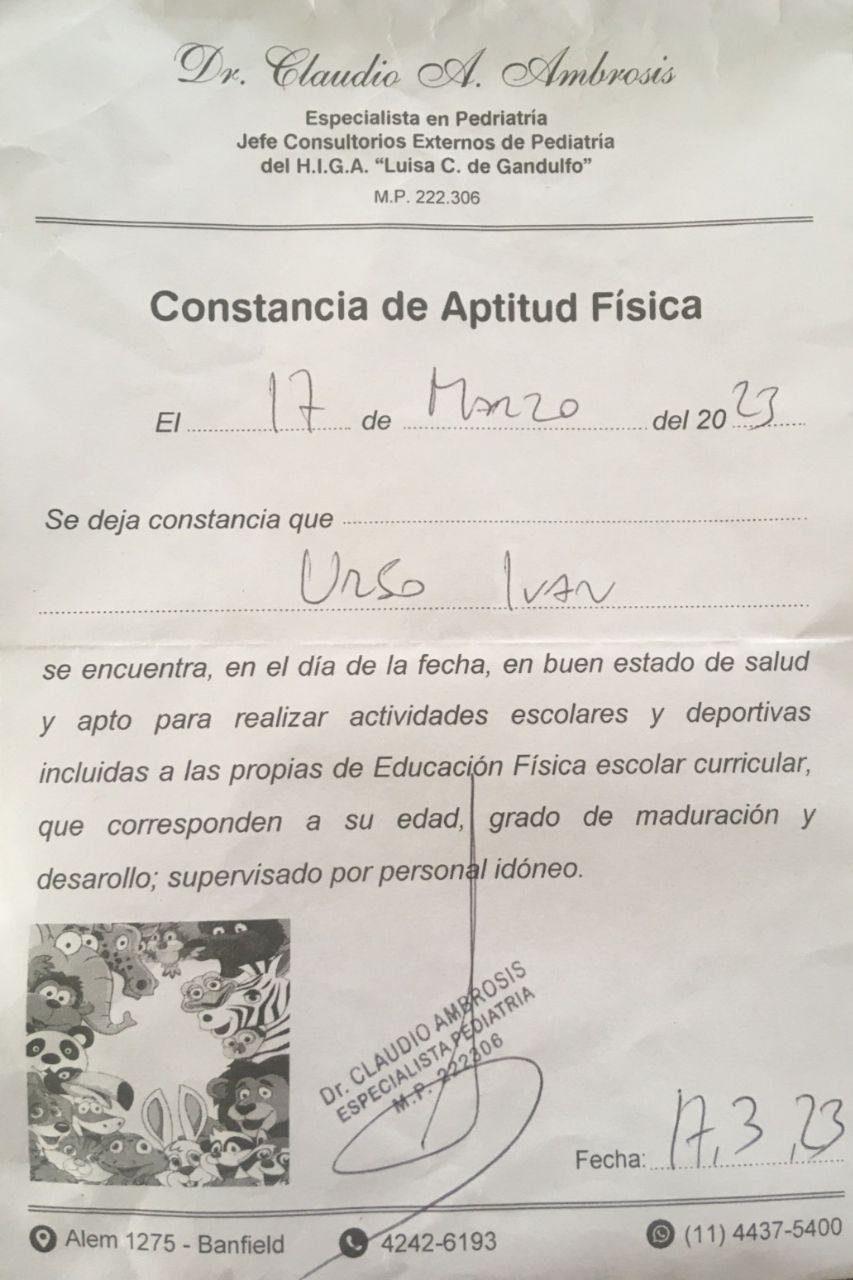 Dr. Claudio A. Ambrosis
Especialista en Pedriatría
Jefe Consultorios Externos de Pediatría
del H.I.G.A. “Luisa C. de Gandulfo”
M.P. 222.306
Constancia de Aptitud Física
El 17 de Marzo del 2023
Se deja constancia que
Urso Ivan
se encuentra, en el día de la fecha, en buen estado de salud
y apto para realizar actividades escolares y deportivas
incluidas a las propias de Educación Física escolar curricular,
que corresponden a su edad, grado de maduración y
desarollo; supervisado por personal idóneo.
Dr. CLAUDIO AMBROSIS
ESPECIALISTA PEDIATRIA
M.P. 222306
Fecha: 17,3,23
Alem 1275 - Banfield 4242-6193 (11) 4437-5400